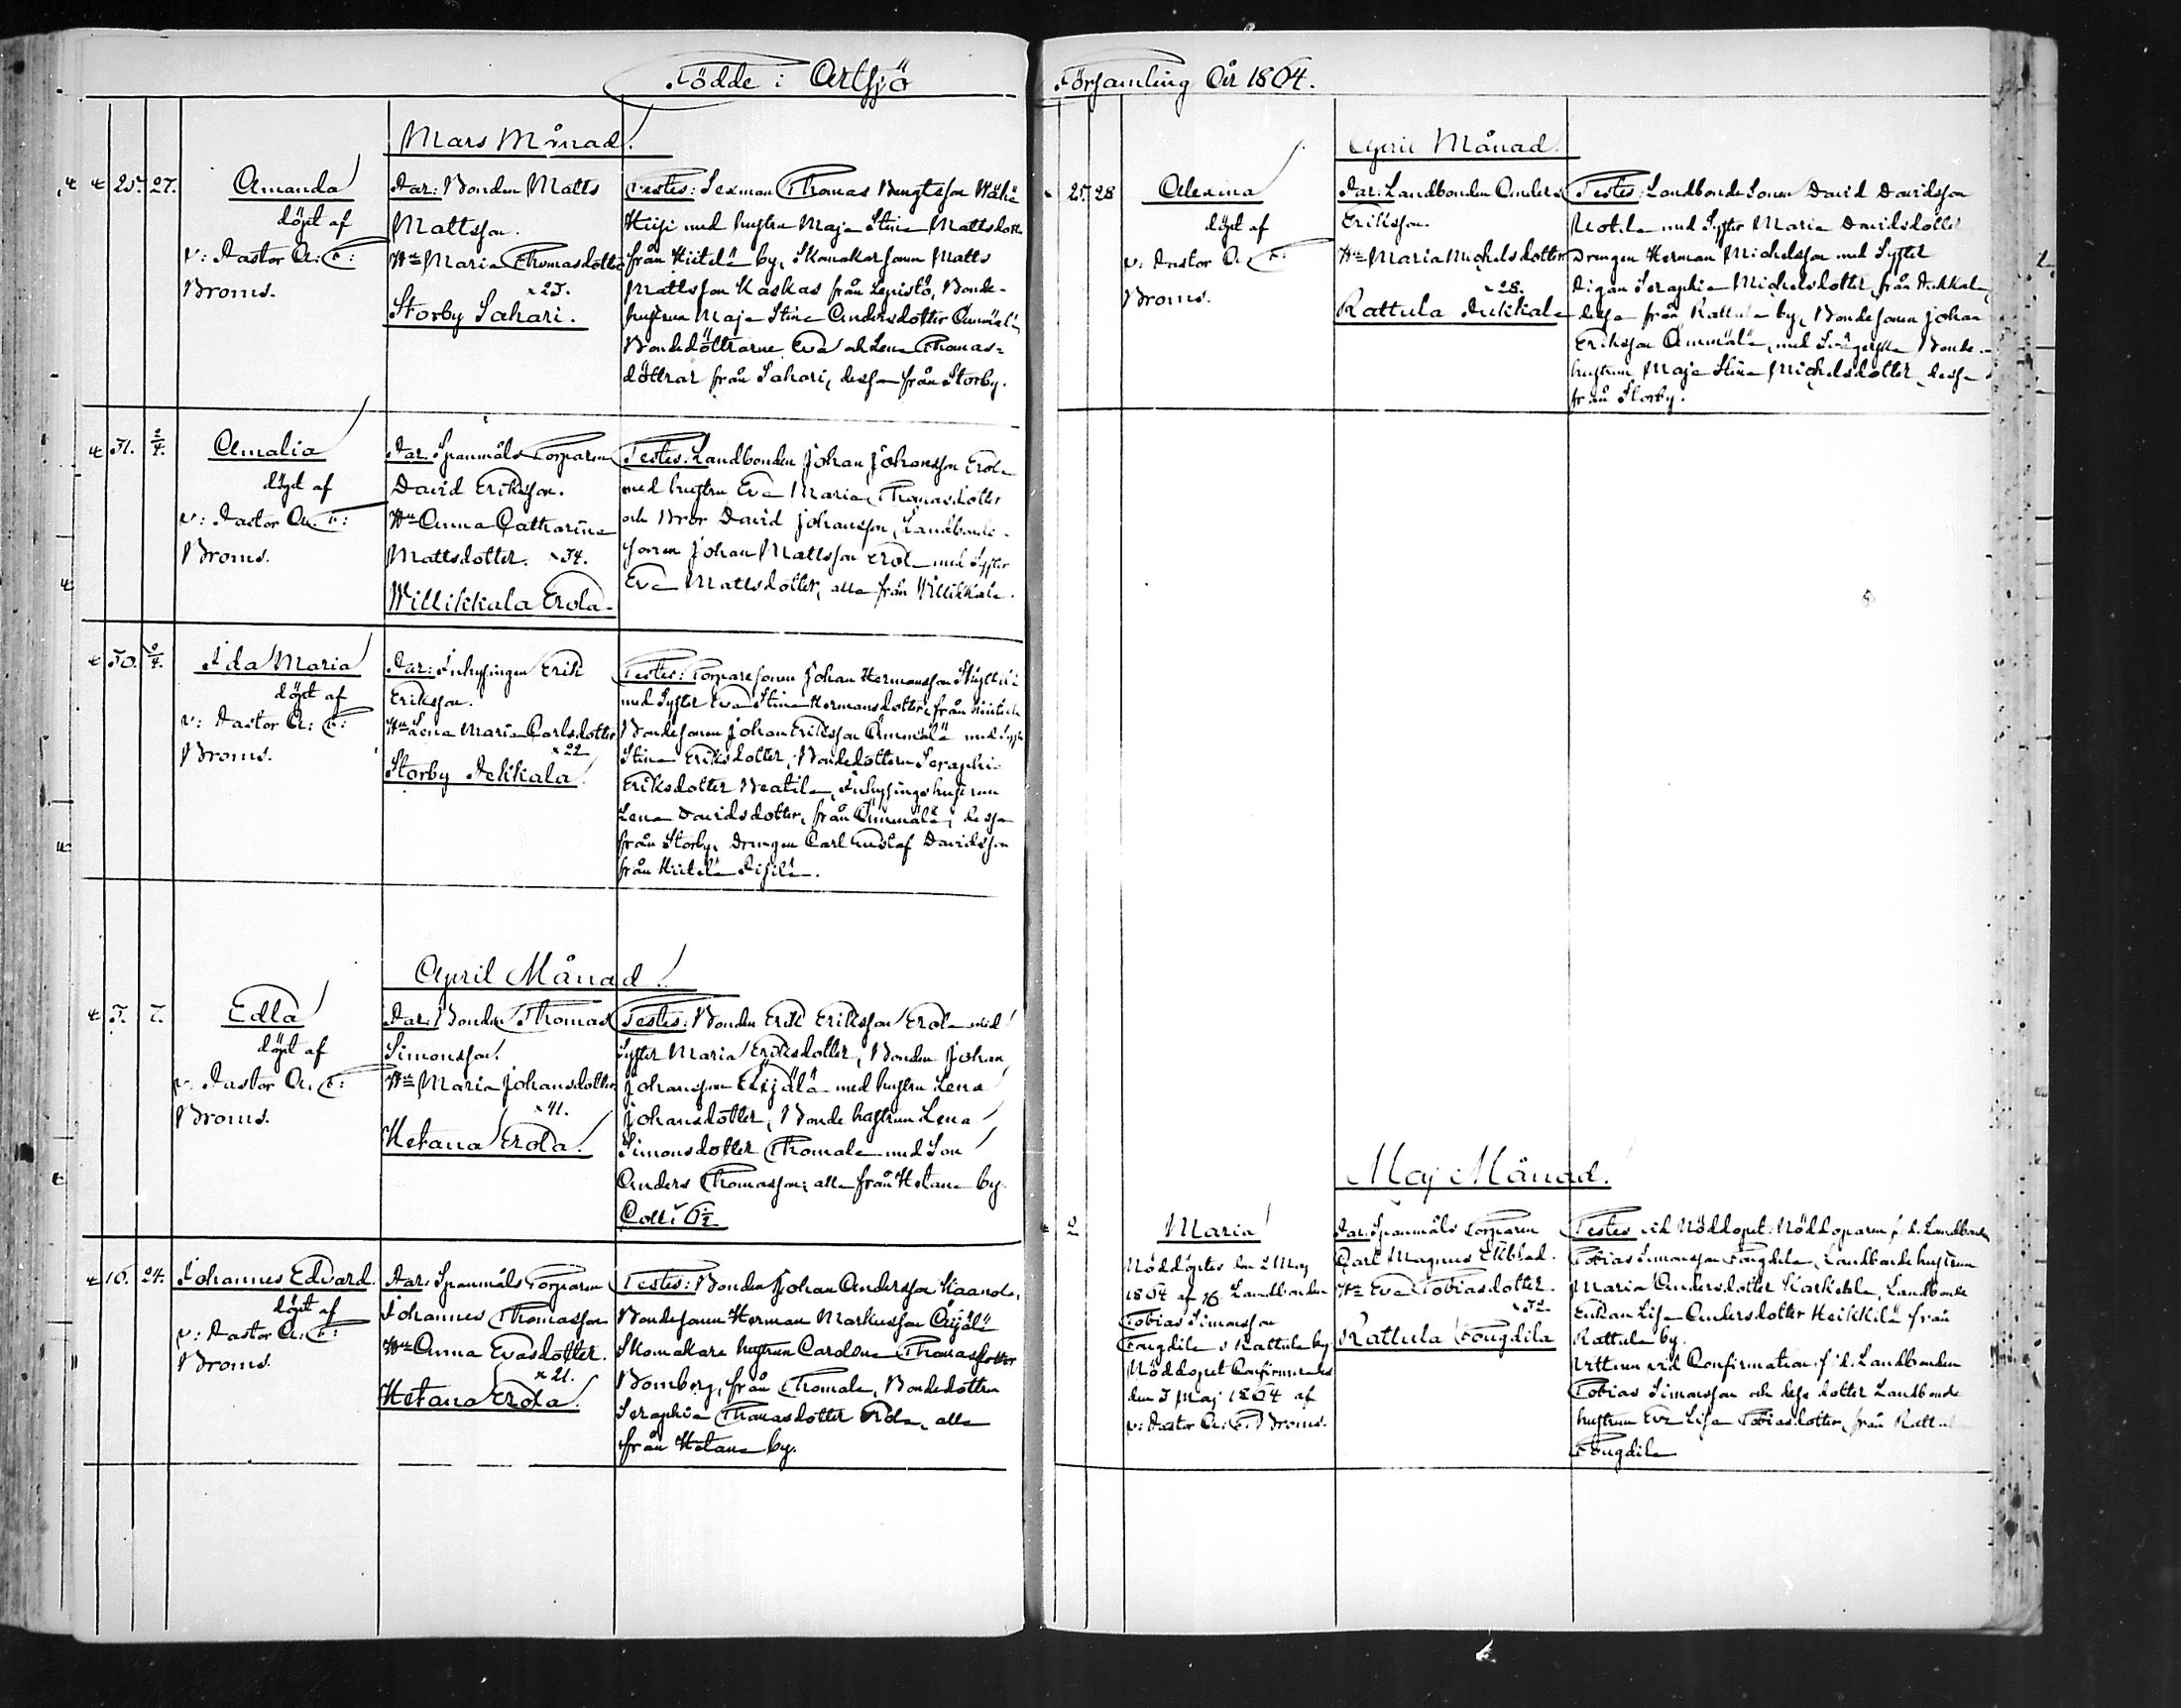 Födde i Artsjö
Mars Månad.
25. 27.
Amanda
döpt af
v: Pastor A: F:
Broms.
Par: Bonden Matts
Mattsson.
Hu Maria Thomasdotter
25.
Storby Sahari.
Testes: Sexman Thomas Bengtsson Wähä
Hiisi med hustru Maja Stina Mattsdotter
från Hiitelä by, Skomakarsonen Matts
Mattsson Kaskas från Lepistö, Bonde-
hustrun Maja Stina Andersdotter Ämmälä
Bondedöttrarne Eva och Lena Thomas-
döttrar från Sahari, dessa från Storby.
31. 2/4.
Amalia
döpt af
v: Pastor A: F:
Broms.
Par: Spanmåls Torparen
David Eriksson.
Hu Anna Catharina
Mattsdotter. 34.
Willikkala Erola.
Testes: Landbonden Johan Johansson Erola
med hustru Eva Maria Thomasdotter
och Bror David Johansson, Landbonde-
sonen Johan Mattsson Erola med Syster
Eva Mattsdotter, alla från Willikkala.
30. /4.
Ida Maria
döpt af
v: Pastor A: F:
Broms.
Par: Inhysingen Erik
Eriksson.
Hu Lena Maria Carlsdotter
22
Storby Pekkala.
Testes: Torparesonen Johan Hermansson
med Syster Eva Stina Hermansdotter, från
Bondesonen Johan Eriksson Ämmälä med Syster
Stina Eriksdotter, Bondedottern Seraphia
Eriksdotter Beatila, Inhysingshustrun
Lena Davidsdotter, från Ämmälä, dessa
från Storby, Drengen Carl Gustaf Davidsson
från Hiitelä
April Månad.
3. 7.
Edla
döpt af
v: Pastor A: F:
Broms.
Par: Bonden Thomas
Simonsson.
Hu Maria Johansdotter
41.
Hetana Erola.
Testes: Bonden Erik Eriksson Erola med
Syster Maria Eriksdotter, Bonden Johan
Johansson med hustru Lena
Johansdotter, Bonde hustrun Lena
Simonsdotter Thomala med Son
Anders Thomasson; alla från Hetana by.
16. 24.
Johannes Edvard.
döpt af
v: Pastor A: F:
Broms.
Par: Spanmåls Torparen
Johannes Thomasson
Hu Anna Evasdotter.
21.
Hetana Erola.
Testes: Bonden Johan Andersson Kaanola,
Bondesonen Herman Markusson Äijälä
Skomakare hustrun Carolina Thomasdotter
Bomberg, från Thomala, Bondedottren
Seraphia Thomasdotter Erola, alla
från Hetana by.
Församling År 1864.
April Månad.
25. 28
Alexina
döpt af
v: Pastor A: F:
Broms.
Par: Landbonden Anders
Eriksson.
Hu Maria Michelsdotter
28.
Rattula Pekkala
Testes: Landbonde Sonen David Davidsson
med Syster Maria Davidsdotter
Drengen Herman Michelsson med Syster
Pigan Seraphia Michelsdotter, från Pekkala,
dessa från Rattula by, Bondesonen Johan
Eriksson Ämmälä, med Svägerska Bonde-
hustrun Maja Stina Michelsdotter, dessa
från Storby.
Maj Månad.
2
Maria
Nöddöptes den 2 Maj
1864 af Landbonden
Tobias Simonsson
Fougdila i Rattula by
Nöddopet Confirmerades
den 3 Maj 1864 af
v: Pastor A: F: Broms.
Par: Spanmåls Torparen
Carl Magnus Ekblad.
Hu Eva Tobiasdotter
32.
Rattula Fougdila
Testes vid Nöddopet: Nöddoparen f. d. Landbonden
Tobias Simonsson Fougdila, Landbonde hustrun
Maria Andersdotter Karkela, Landbonde
Enkan Lisa Andersdotter Heikkilä från
Rattula by.
Vittnen vid Confirmation: f. d. Landbonden
Tobias Simonsson och dess dotter Landbonde
hustrun Eva Lisa Tobiasdotter, från Rattula
Fougdila